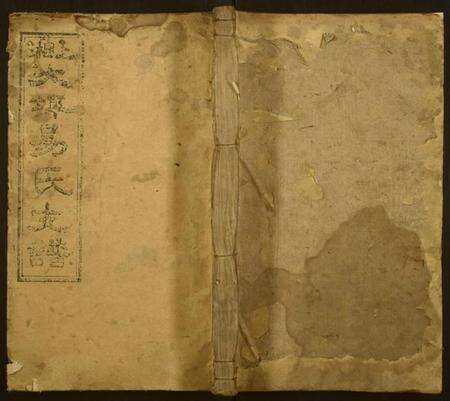 上湘大坪易氏支譜